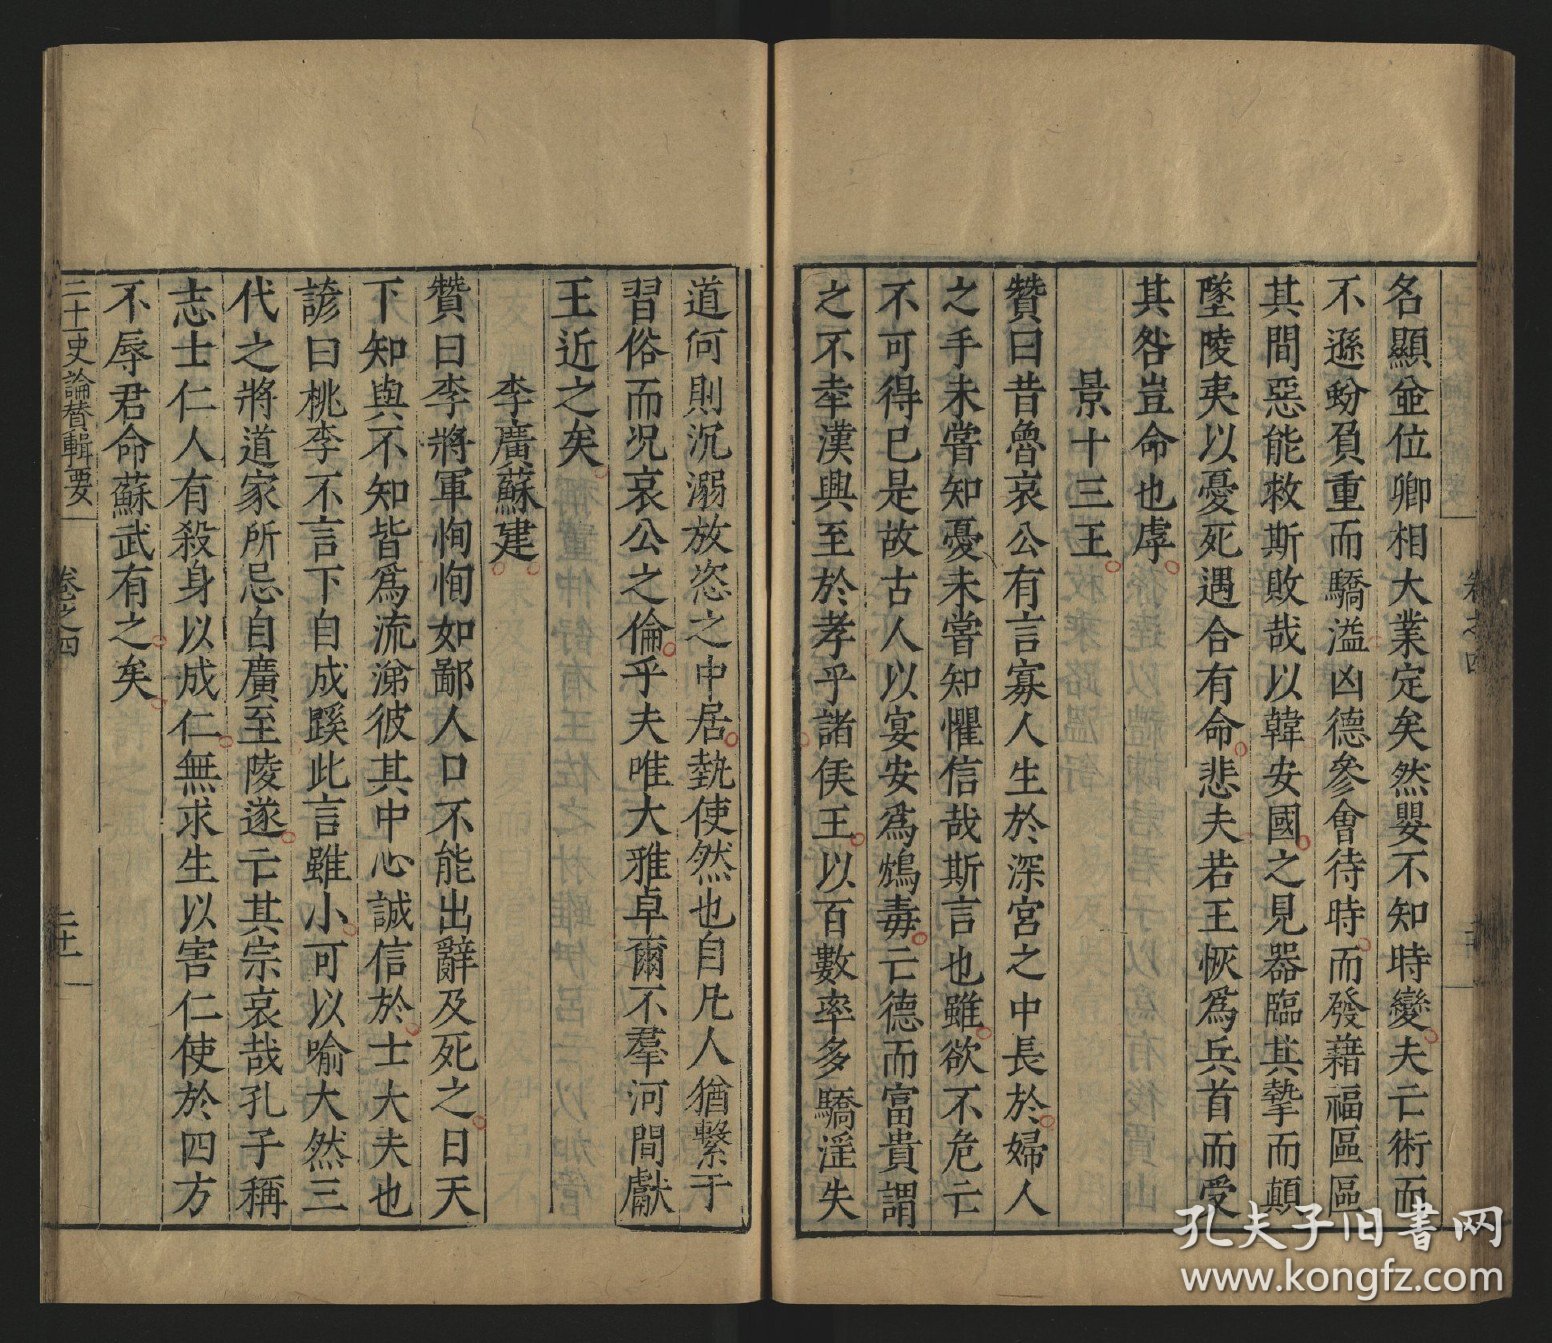 名顯並位卿相大業定矣然嬰不知時變夫亡術而
不遜蚡負重而驕溢凶德參會待時而發藉福區區
其間惡能救斯敗哉以韓安國之見器臨其摯而顛
墜陵夷以憂死遇合有命悲夫若王恢爲兵首而受
其咎豈命也虖
景十三王
贊曰昔魯哀公有言寡人生於深宮之中長於婦人
之手未嘗知憂未嘗知懼信哉斯言也雖欲不危亡
不可得已是故古人以宴安爲鴆毒亡德而富貴謂
之不幸漢興至於孝乎諸侯王以百數率多驕淫失
道何則沉溺放恣之中居埶使然也自凡人猶繫于
習俗而况哀公之倫乎夫唯大雅卓爾不羣河間獻
王近之矣
李廣蘇建
贊曰李將軍恂恂如鄙人口不能出辭及死之日天
下知與不知皆爲流涕彼其中心誠信於士大夫也
諺曰桃李不言下自成蹊此言雖小可以喻大然三
代之將道家所忌自廣至陵遂亡其宗哀哉孔子稱
志士仁人有殺身以成仁無求生以害仁使於四方
不辱君命蘇武有之矣
二十一史論贊輯要 卷之四 二十一
孔夫子旧书网
www.kongfz.com